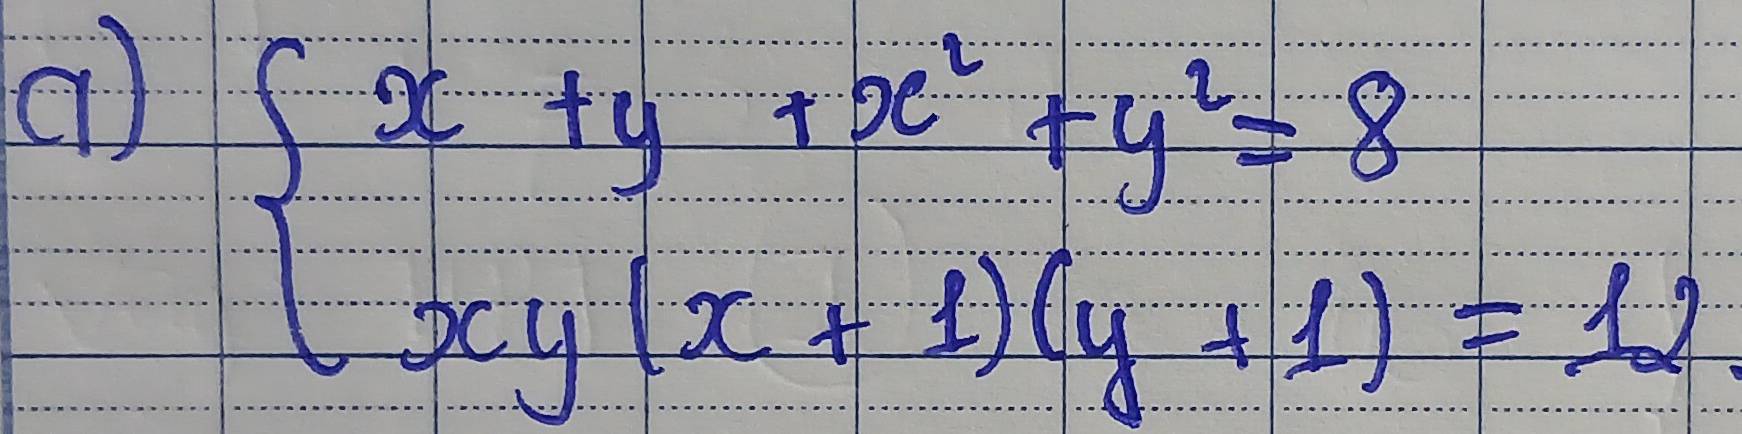 a) { x + y + x² + y² = 8
xy(x + 1)(y + 1) = 12.